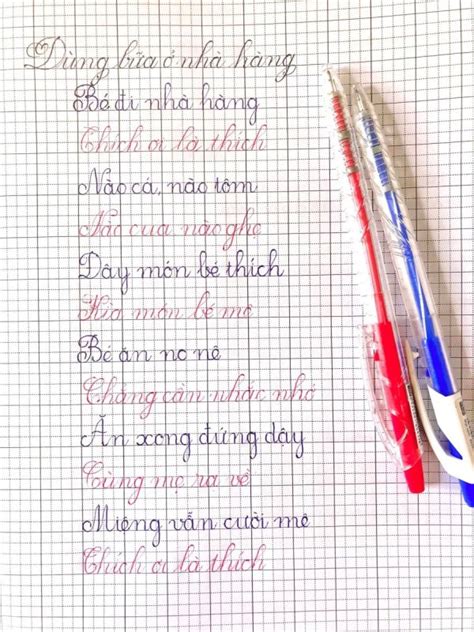 Dùng bữa ở nhà hàng
Bé đi nhà hàng
Thích ơi là thích
Nào cá, nào tôm
Nào cua nào ghẹ
Đây món bé thích
Kìa món bé mê
Bé ăn no nê
Chẳng cần nhắc nhở
Ăn xong đứng dậy
Cùng mẹ ra về
Miệng vẫn cười mê
Thích ơi là thích